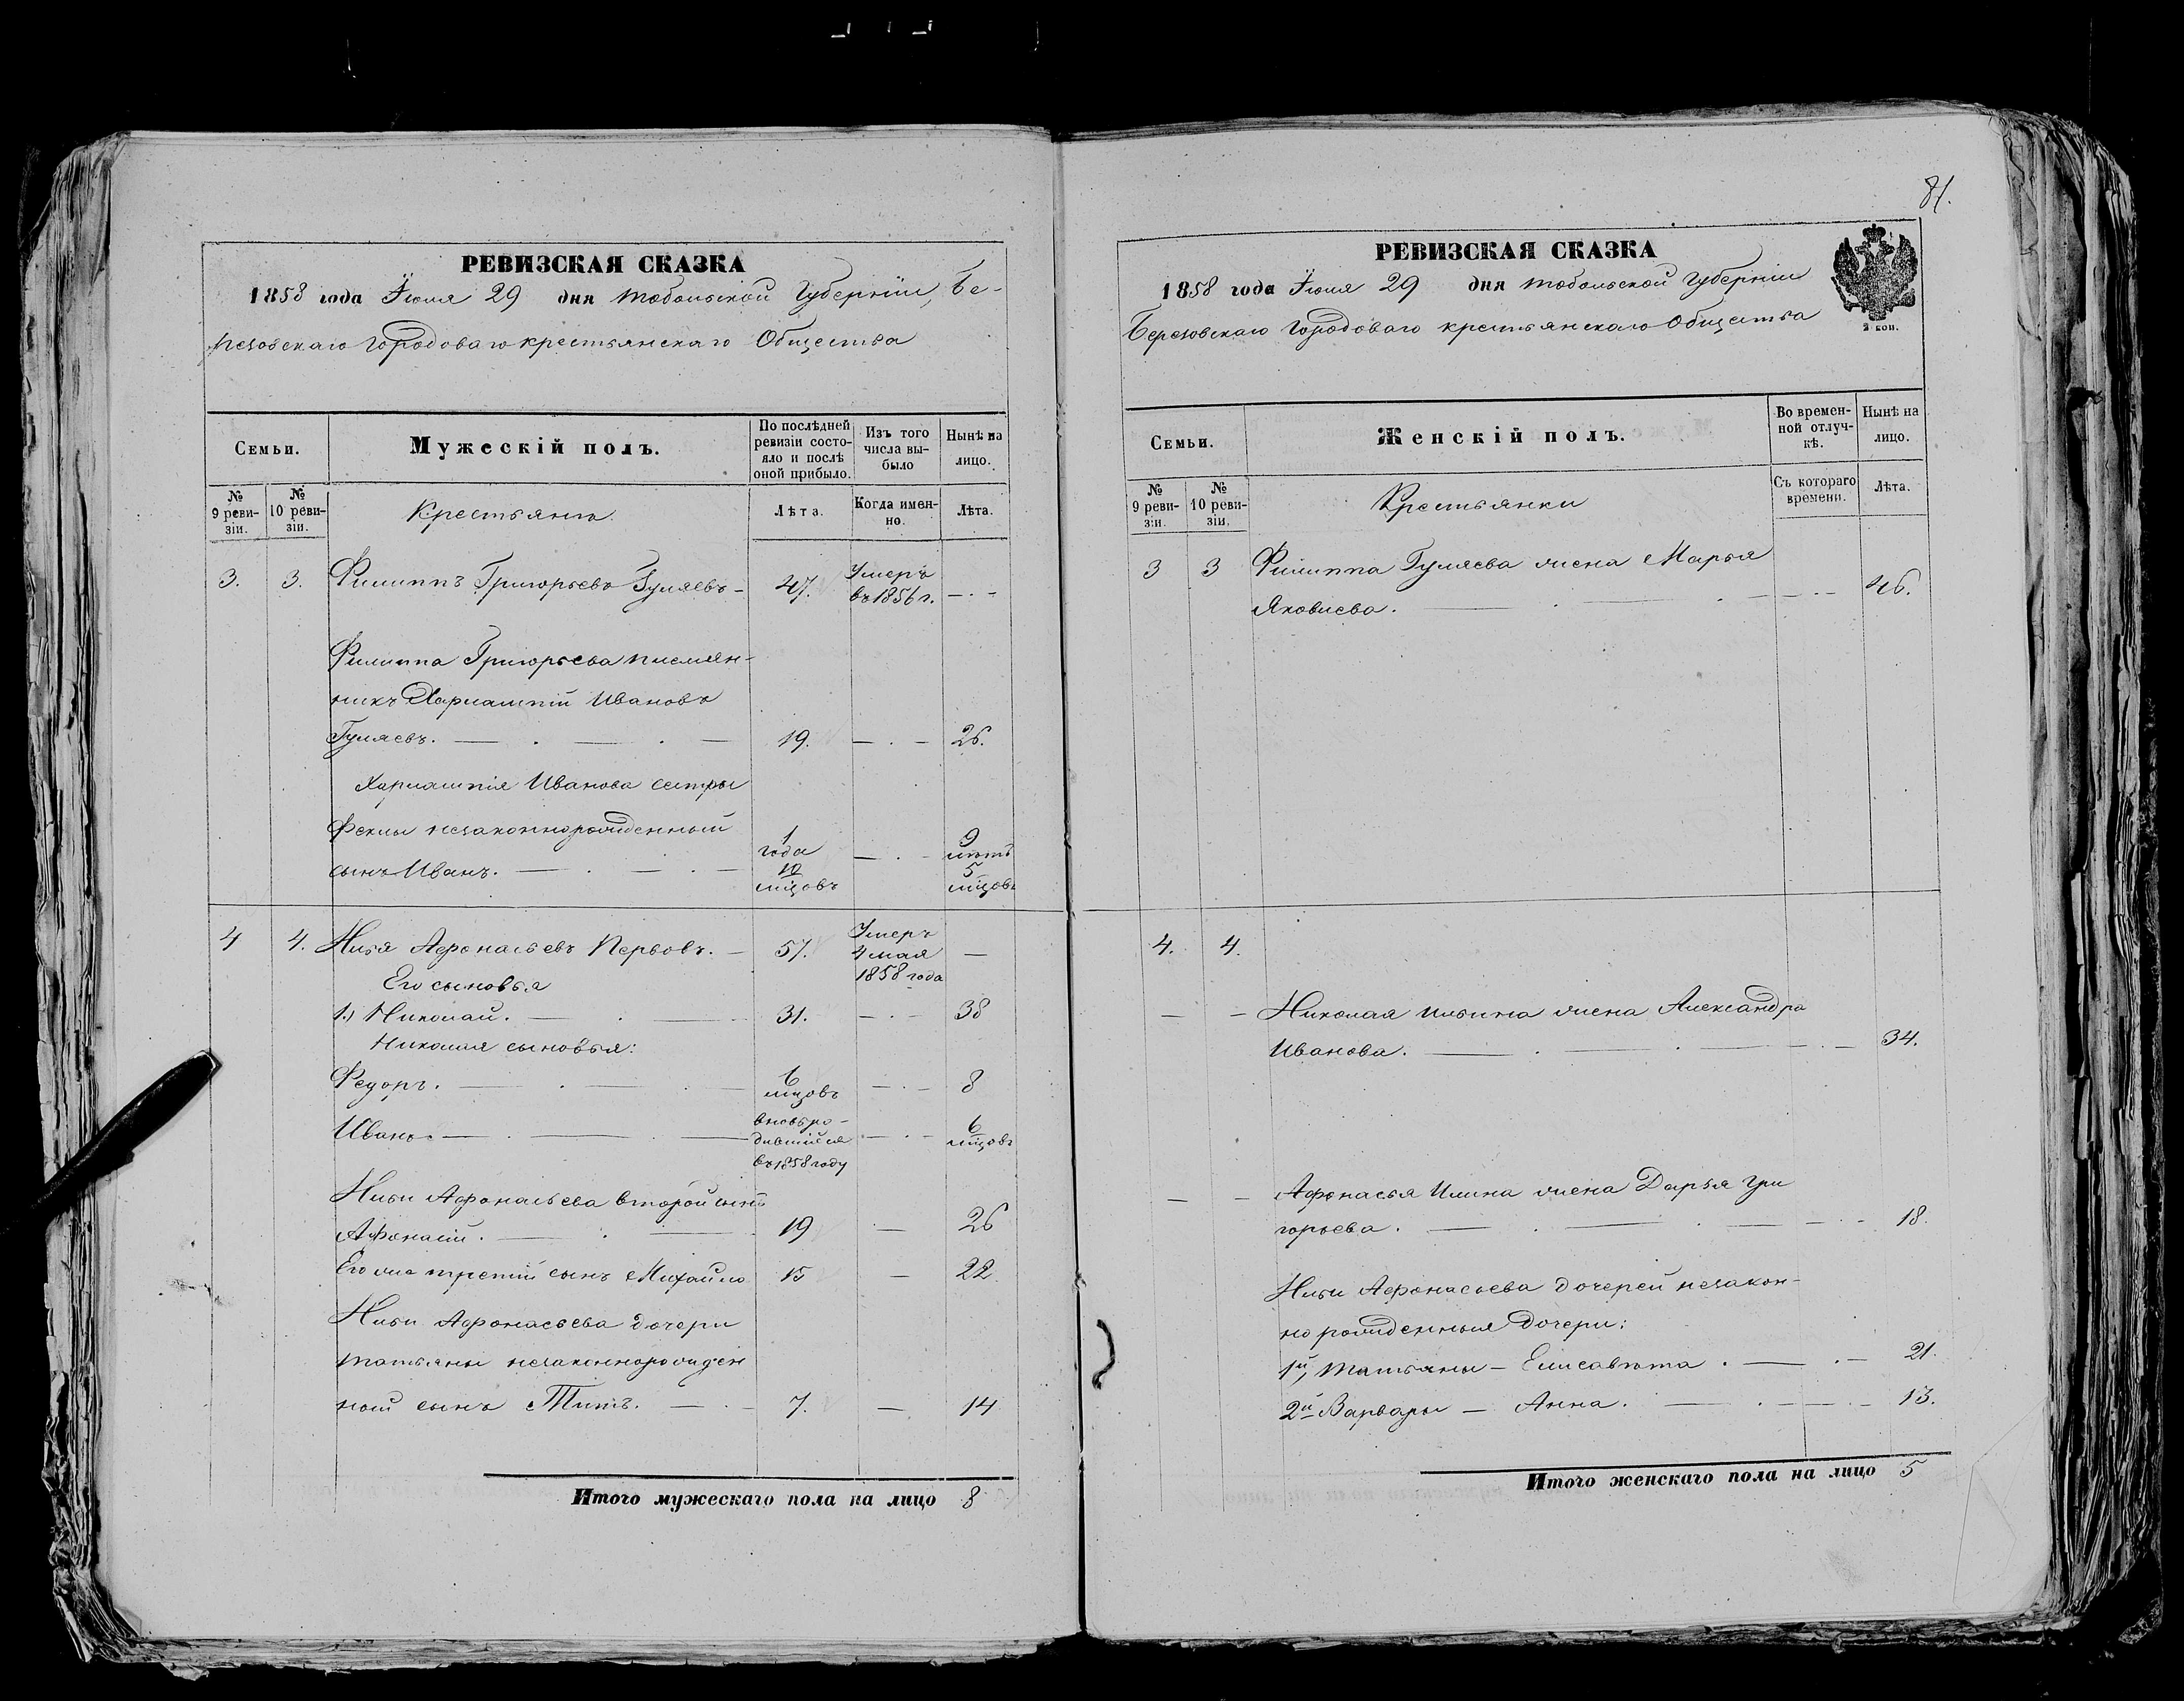 РЕВИЗСКАЯ СКАЗКА
1858 года Іюня 29 дня Тобольской Губерніи, Бе-
резовскаго Городоваго крестьянскаго Общества
Семьи.
Мужескій полъ.
По послѣдней ревизіи состояло и послѣ оной прибыло.
Изъ того числа выбыло
Нынѣ на лицо.
№ 9 ревизіи.
№ 10 ревизіи.
Крестьяне.
Лѣта.
Когда именно.
Лѣта.
3. 3. Филиппъ Григорьевъ Гуляевъ - 47. Умеръ въ 1856 г. — · -
Филиппа Григорьева племян-
никъ Харлампій Ивановъ
Гуляевъ. — . — . — 19. — . — 26.
Харлампія Иванова сестры
Феклы незаконнорожденный
сынъ Иванъ. — . — . — 1 года 10 мцовъ — . - 9 лѣтъ 5 мцовъ
4 4. Илья Афонасьевъ Первовъ. — 57. Умеръ 4 мая 1858 года —
Его сыновья
1.) Николай. — . — 31. — . - 38
Николая сыновья:
Федоръ. — . — . — 6 мцовъ — . — 8
Иванъ. — . — . — вновьро-дившійся въ 1858 году — . — 6 мцовъ
Ильи Афонасьева второй сынъ
Афонасій. — . — 19 — 26
Его же третій сынъ Михайло 15 — 22.
Ильи Афонасьева дочери
Татьяны незаконнорожден
ной сынъ Титъ. — . - 7. — 14
Итого мужескаго пола на лицо 8
81.
РЕВИЗСКАЯ СКАЗКА
1858 года Іюня 29 дня Тобольской Губерніи
Березовскаго Городоваго крестьянскаго Общества
2 коп.
Семьи.
Женскій полъ.
Во временной отлучкѣ.
Нынѣ на лицо.
№ 9 ревизіи.
№ 10 ревизіи.
Крестьянки
Съ котораго времени.
Лѣта.
3 3 Филиппа Гуляева жена Марья
Яковлева. — . — — . — 46.
4. 4.
— — Николая Ильина жена Александра
Иванова. — . — . — . — 34.
— — Афонасья Илина жена Дарья Гри
горьева. — . — . — . - 18.
Ильи Афонасьева дочерей незакон-
но рожденныя дочери:
1й, Татьяны — Елисавѣта . — . — 21.
2й Варвары — Анна. — . — . — 13.
Итого женскаго пола на лицо 5